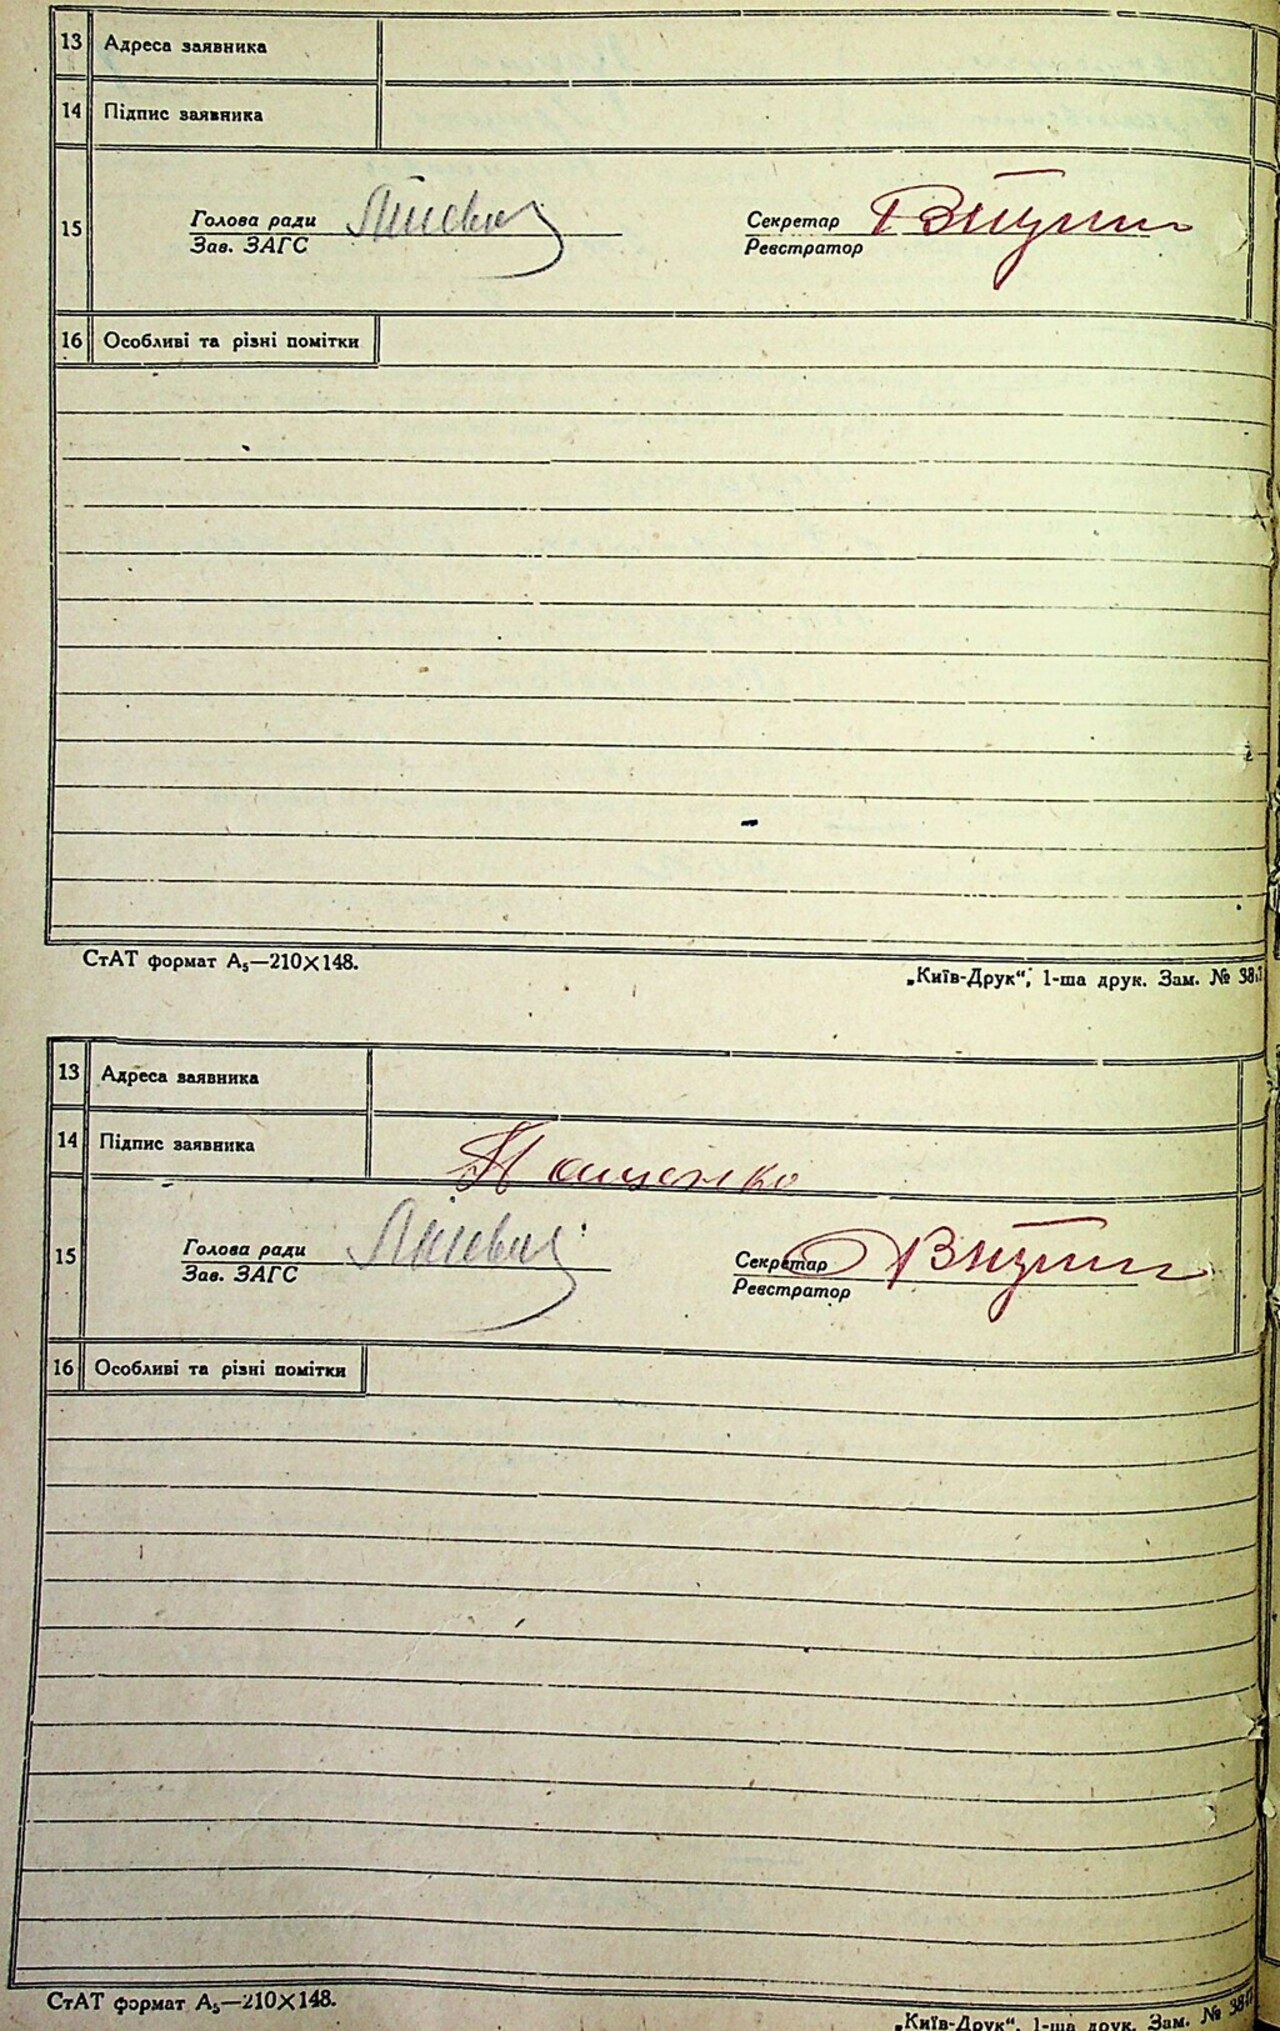 13 Адреса заявника
14 Підпис заявника
15 Голова ради Секретар
Зав. ЗАГС Реєстратор
16 Особливі та різні помітки
СтАТ формат А₅—210×148.
„Київ-Друк“, 1-ша друк. Зам. №
13 Адреса заявника
14 Підпис заявника Пащенко
15 Голова ради Секретар
Зав. ЗАГС Реєстратор
16 Особливі та різні помітки
СтАТ формат А₅—210×148.
„Київ-Друк“, 1-ша друк. Зам. №